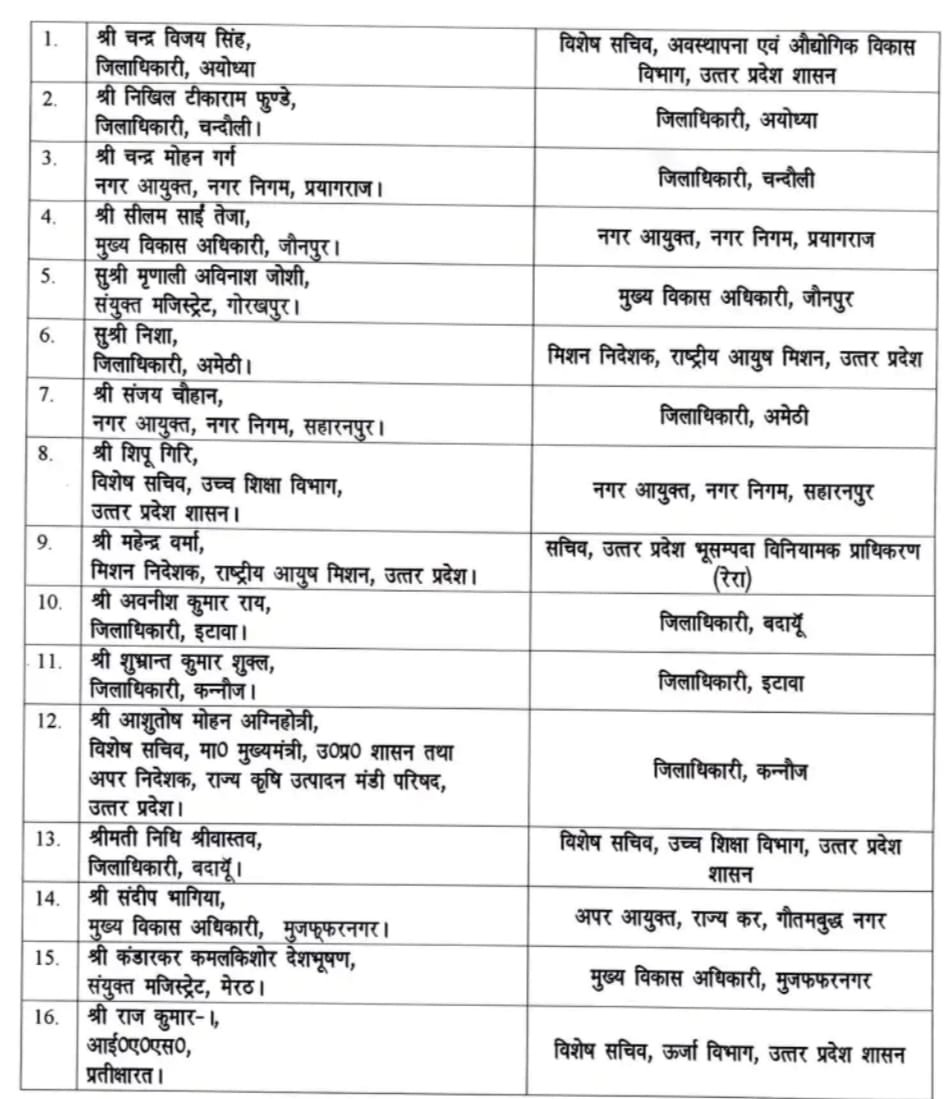 1.
श्री चन्द्र विजय सिंह,
जिलाधिकारी, अयोध्या
विशेष सचिव, अवस्थापना एवं औद्योगिक विकास
विभाग, उत्तर प्रदेश शासन
2.
श्री निखिल टीकाराम फुण्डे,
जिलाधिकारी, चन्दौली।
जिलाधिकारी, अयोध्या
3.
श्री चन्द्र मोहन गर्ग
नगर आयुक्त, नगर निगम, प्रयागराज।
जिलाधिकारी, चन्दौली
4.
श्री सीलम साईं तेजा,
मुख्य विकास अधिकारी, जौनपुर।
नगर आयुक्त, नगर निगम, प्रयागराज
5.
सुश्री मृणाली अविनाश जोशी,
संयुक्त मजिस्ट्रेट, गोरखपुर।
मुख्य विकास अधिकारी, जौनपुर
6.
सुश्री निशा,
जिलाधिकारी, अमेठी।
मिशन निदेशक, राष्ट्रीय आयुष मिशन, उत्तर प्रदेश
7.
श्री संजय चौहान,
नगर आयुक्त, नगर निगम, सहारनपुर।
जिलाधिकारी, अमेठी
8.
श्री शिपू गिरि,
विशेष सचिव, उच्च शिक्षा विभाग,
उत्तर प्रदेश शासन।
नगर आयुक्त, नगर निगम, सहारनपुर
9.
श्री महेन्द्र वर्मा,
मिशन निदेशक, राष्ट्रीय आयुष मिशन, उत्तर प्रदेश।
सचिव, उत्तर प्रदेश भूसम्पदा विनियामक प्राधिकरण
(रेरा)
10.
श्री अवनीश कुमार राय,
जिलाधिकारी, इटावा।
जिलाधिकारी, बदायूॅ
11.
श्री शुभ्रान्त कुमार शुक्ल,
जिलाधिकारी, कन्नौज।
जिलाधिकारी, इटावा
12.
श्री आशुतोष मोहन अग्निहोत्री,
विशेष सचिव, मा0 मुख्यमंत्री, उ0प्र0 शासन तथा
अपर निदेशक, राज्य कृषि उत्पादन मंडी परिषद,
उत्तर प्रदेश।
जिलाधिकारी, कन्नौज
13.
श्रीमती निधि श्रीवास्तव,
जिलाधिकारी, बदायूॅ।
विशेष सचिव, उच्च शिक्षा विभाग, उत्तर प्रदेश
शासन
14.
श्री संदीप भागिया,
मुख्य विकास अधिकारी, मुजफ्फरनगर।
अपर आयुक्त, राज्य कर, गौतमबुद्ध नगर
15.
श्री कंडारकर कमलकिशोर देशभूषण,
संयुक्त मजिस्ट्रेट, मेरठ।
मुख्य विकास अधिकारी, मुजफफरनगर
16.
श्री राज कुमार-।,
आई0ए0एस0,
प्रतीक्षारत।
विशेष सचिव, ऊर्जा विभाग, उत्तर प्रदेश शासन